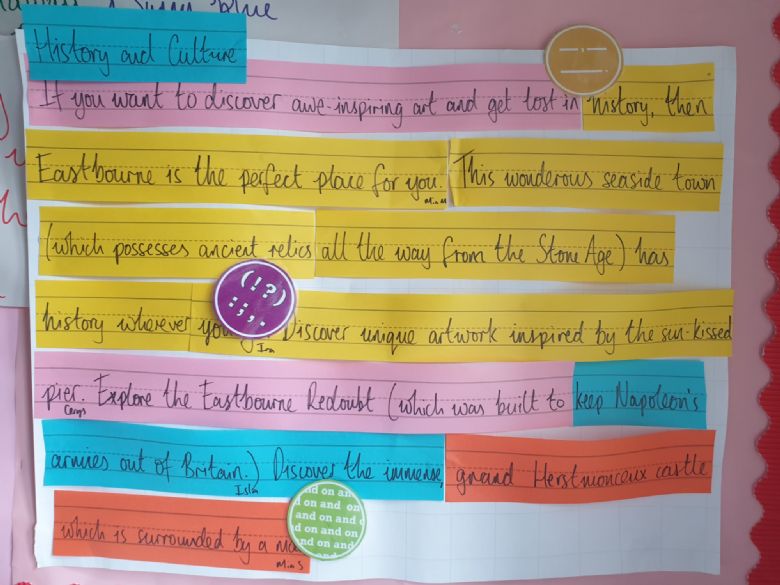 blue
History and Culture
If you want to discover awe-inspiring art and get lost in history, then
Eastbourne is the perfect place for you. This wonderous seaside town
(which possesses ancient relics all the way from the Stone Age) has
history wherever Discover unique artwork inspired by the sun-kissed
pier. Explore the Eastbourne Redoubt (which was built to keep Napoleon's
armies out of Britain.) Discover the immense, grand Herstmonceux castle
which is surrounded by a
(!?)
:;,.
and on and
and on and on